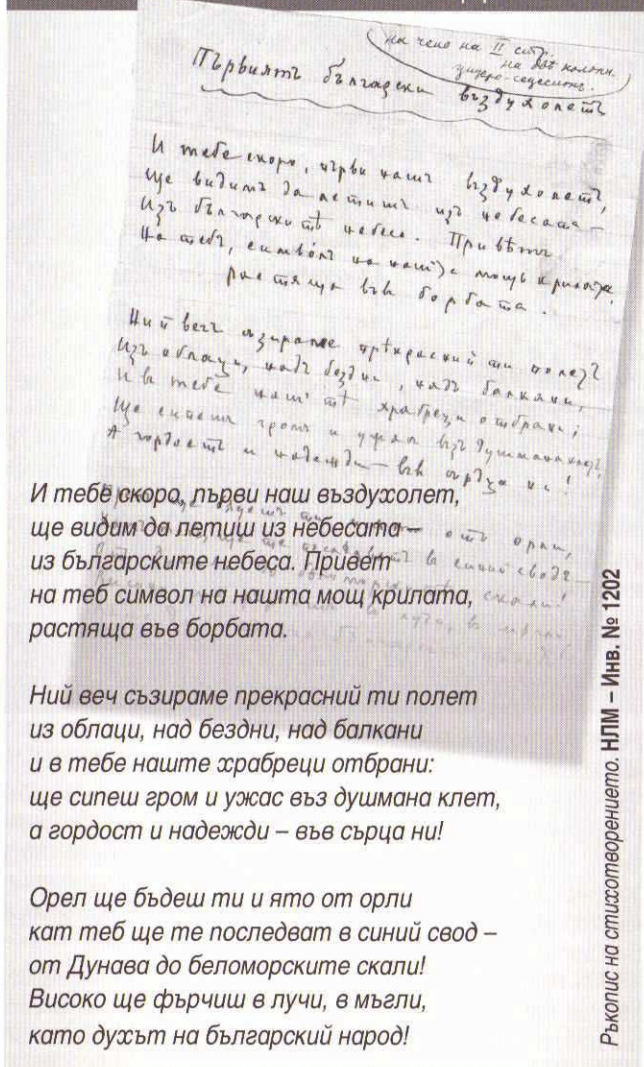 на чело на II стр.
на двѣ колони.
цицеро-сецесионъ.
Първиятъ български въздухолетъ
И тебе скоро, първи нашъ въздухолетъ,
Ще видимъ да летишъ изъ небесата —
Изъ българскитѣ небеса. Привѣтъ
На тебъ, символъ на наш'та мощь крилата,
растяща въвъ борбата.
Ний вечъ съзираме прѣкрасний ти полетъ
Изъ облаци, надъ бездни, надъ балкани,
И въ тебе наш'тѣ храбреци отбрани;
Ще сипешъ громъ и ужас възъ душмана клетъ,
А гордость и надежди — въвъ сърца ни!
отъ орли,
в синий сводъ —
скали!
И тебе скоро, първи наш въздухолет,
ще видим да летиш из небесата –
из българските небеса. Привет
на теб символ на нашта мощ крилата,
растяща във борбата.
Ний веч съзираме прекрасний ти полет
из облаци, над бездни, над балкани
и в тебе наште храбреци отбрани:
ще сипеш гром и ужас въз душмана клет,
а гордост и надежди – във сърца ни!
Орел ще бъдеш ти и ято от орли
кат теб ще те последват в синий свод –
от Дунава до беломорските скали!
Високо ще фърчиш в лучи, в мъгли,
като духът на българский народ!
Ръкопис на стихотворението. НЛМ – Инв. № 1202